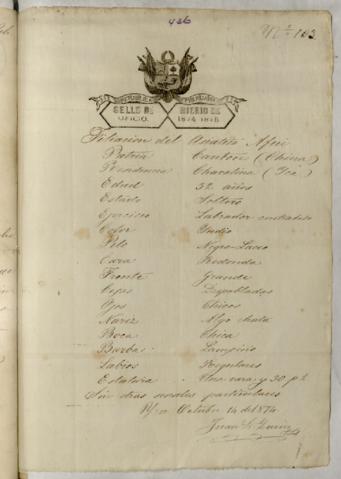 436
Nº 103
SELLO DE
OFICIO.
BIENIO DE
1874 1875
Filiacion del Asiatico Afui
Patria Canton (China)
Residencia Chavalina (Ica)
Edad 32 años
Estado Soltero
Ejercicio Labrador contratado
Color Indio
Pelo Negro-Lacio
Cara Redonda
Frente Grande
Cejas Despobladas
Ojos Chicos
Nariz Algo chata
Boca Chica
Barba Lampiño
Labios Regulares
Estatura Una vara y 30 p.
Sin otras señales particulares
Octubre 14 de 1874
Juan